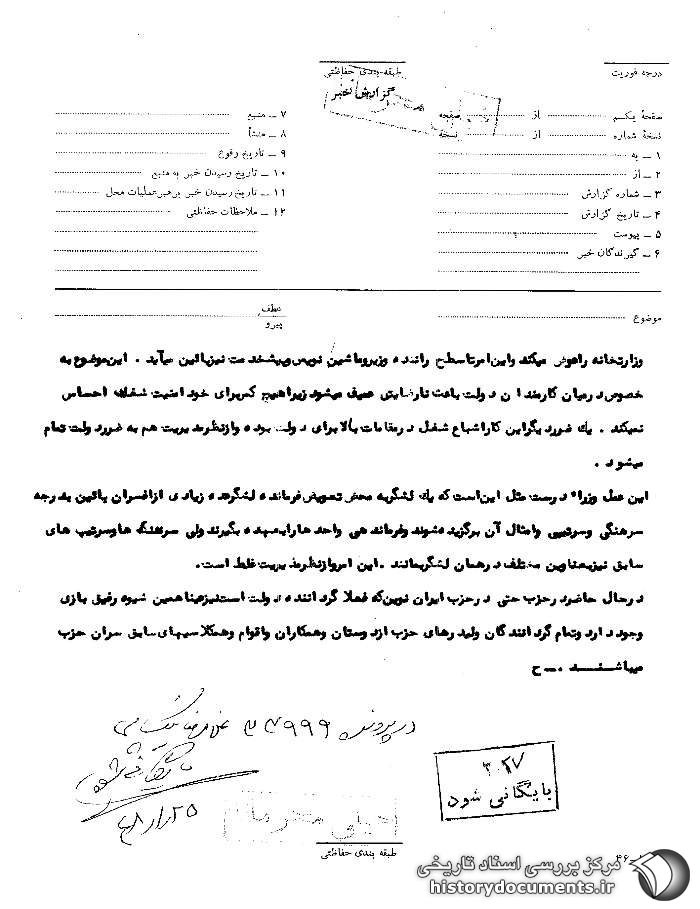 درجه فوریت
طبقه‌بندی حفاظتی
گزارش خبر
صفحهٔ یکم از صفحه
نسخهٔ شماره از نسخه
۱ ــ به
۲ ــ از
۳ ــ شماره گزارش
۴ ــ تاریخ گزارش
۵ ــ پیوست
۶ ــ گیرندگان خبر
۷ ــ منبع
۸ ــ منشأ
۹ ــ تاریخ وقوع
۱۰ ــ تاریخ رسیدن خبر به منبع
۱۱ ــ تاریخ رسیدن خبر برهبر عملیات محل
۱۲ ــ ملاحظات حفاظتی
موضوع
عطف
پیرو
وزارتخانه راعوض میکند واین امرتاسطح راننده وزیروماشین نویس وپیشخدمت نیزپائین میآید . این موضوع به
خصوص درمیان کارمندان دولت باعث نارضایتی عمیق میشود زیراهیچ کس برای خود امنیت شغلی احساس
نمیکند . یك ضرردیگراین کاراشباع شغل درمقامات بالابرای دولت بوده وازنظرمدیریت هم به ضرردولت تمام
میشود .
این عمل وزراء درست مثل این است که یك لشگربه محض تعویض فرمانده لشگرعده زیادی ازافسران پائین بدرجه
سرهنگی وسرتیپی وامثال آن برگزیده شوند وفرماندهی واحدهارابعهده بگیرند ولی سرهنگ هاوسرتیپ های
سابق نیزبعناوین مختلف درهمان لشگربمانند . این امروازنظرمدیریت غلط است.
درحال حاضردرحزب حتی درحزب ایران نوین که فعلا گرداننده دولت است‌نیزعیناهمین شیوه رفیق بازی
وجوددارد وتمام گردانندگان ولیدرهای حزب ازدوستان وهمکاران واقوام وهمکلاسیهای سابق سران حزب
میباشند . ــ ح
در پرونده ۲۳۹۹۹ غلامرضا
بایگانی شود
۴۸/۱/۲۵
۳۰۲۷
بایگانی شود
خیلی محرمانه
طبقه بندی حفاظتی
۴۶
مرکز بررسی اسناد تاریخی
historydocuments.ir